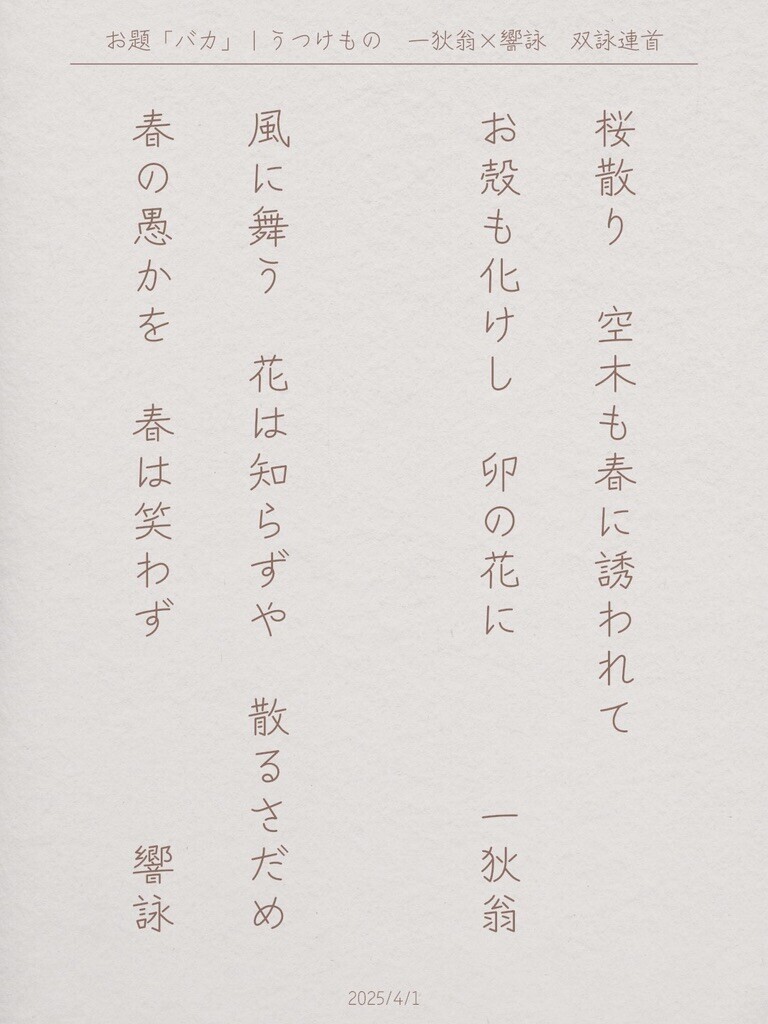 お題「バカ」｜うつけもの　一狄翁×響詠　双詠連首
桜散り　空木も春に誘われて
お殻も化けし　卯の花に　一狄翁
風に舞う　花は知らずや　散るさだめ
春の愚かを　春は笑わず　響詠
2025/4/1